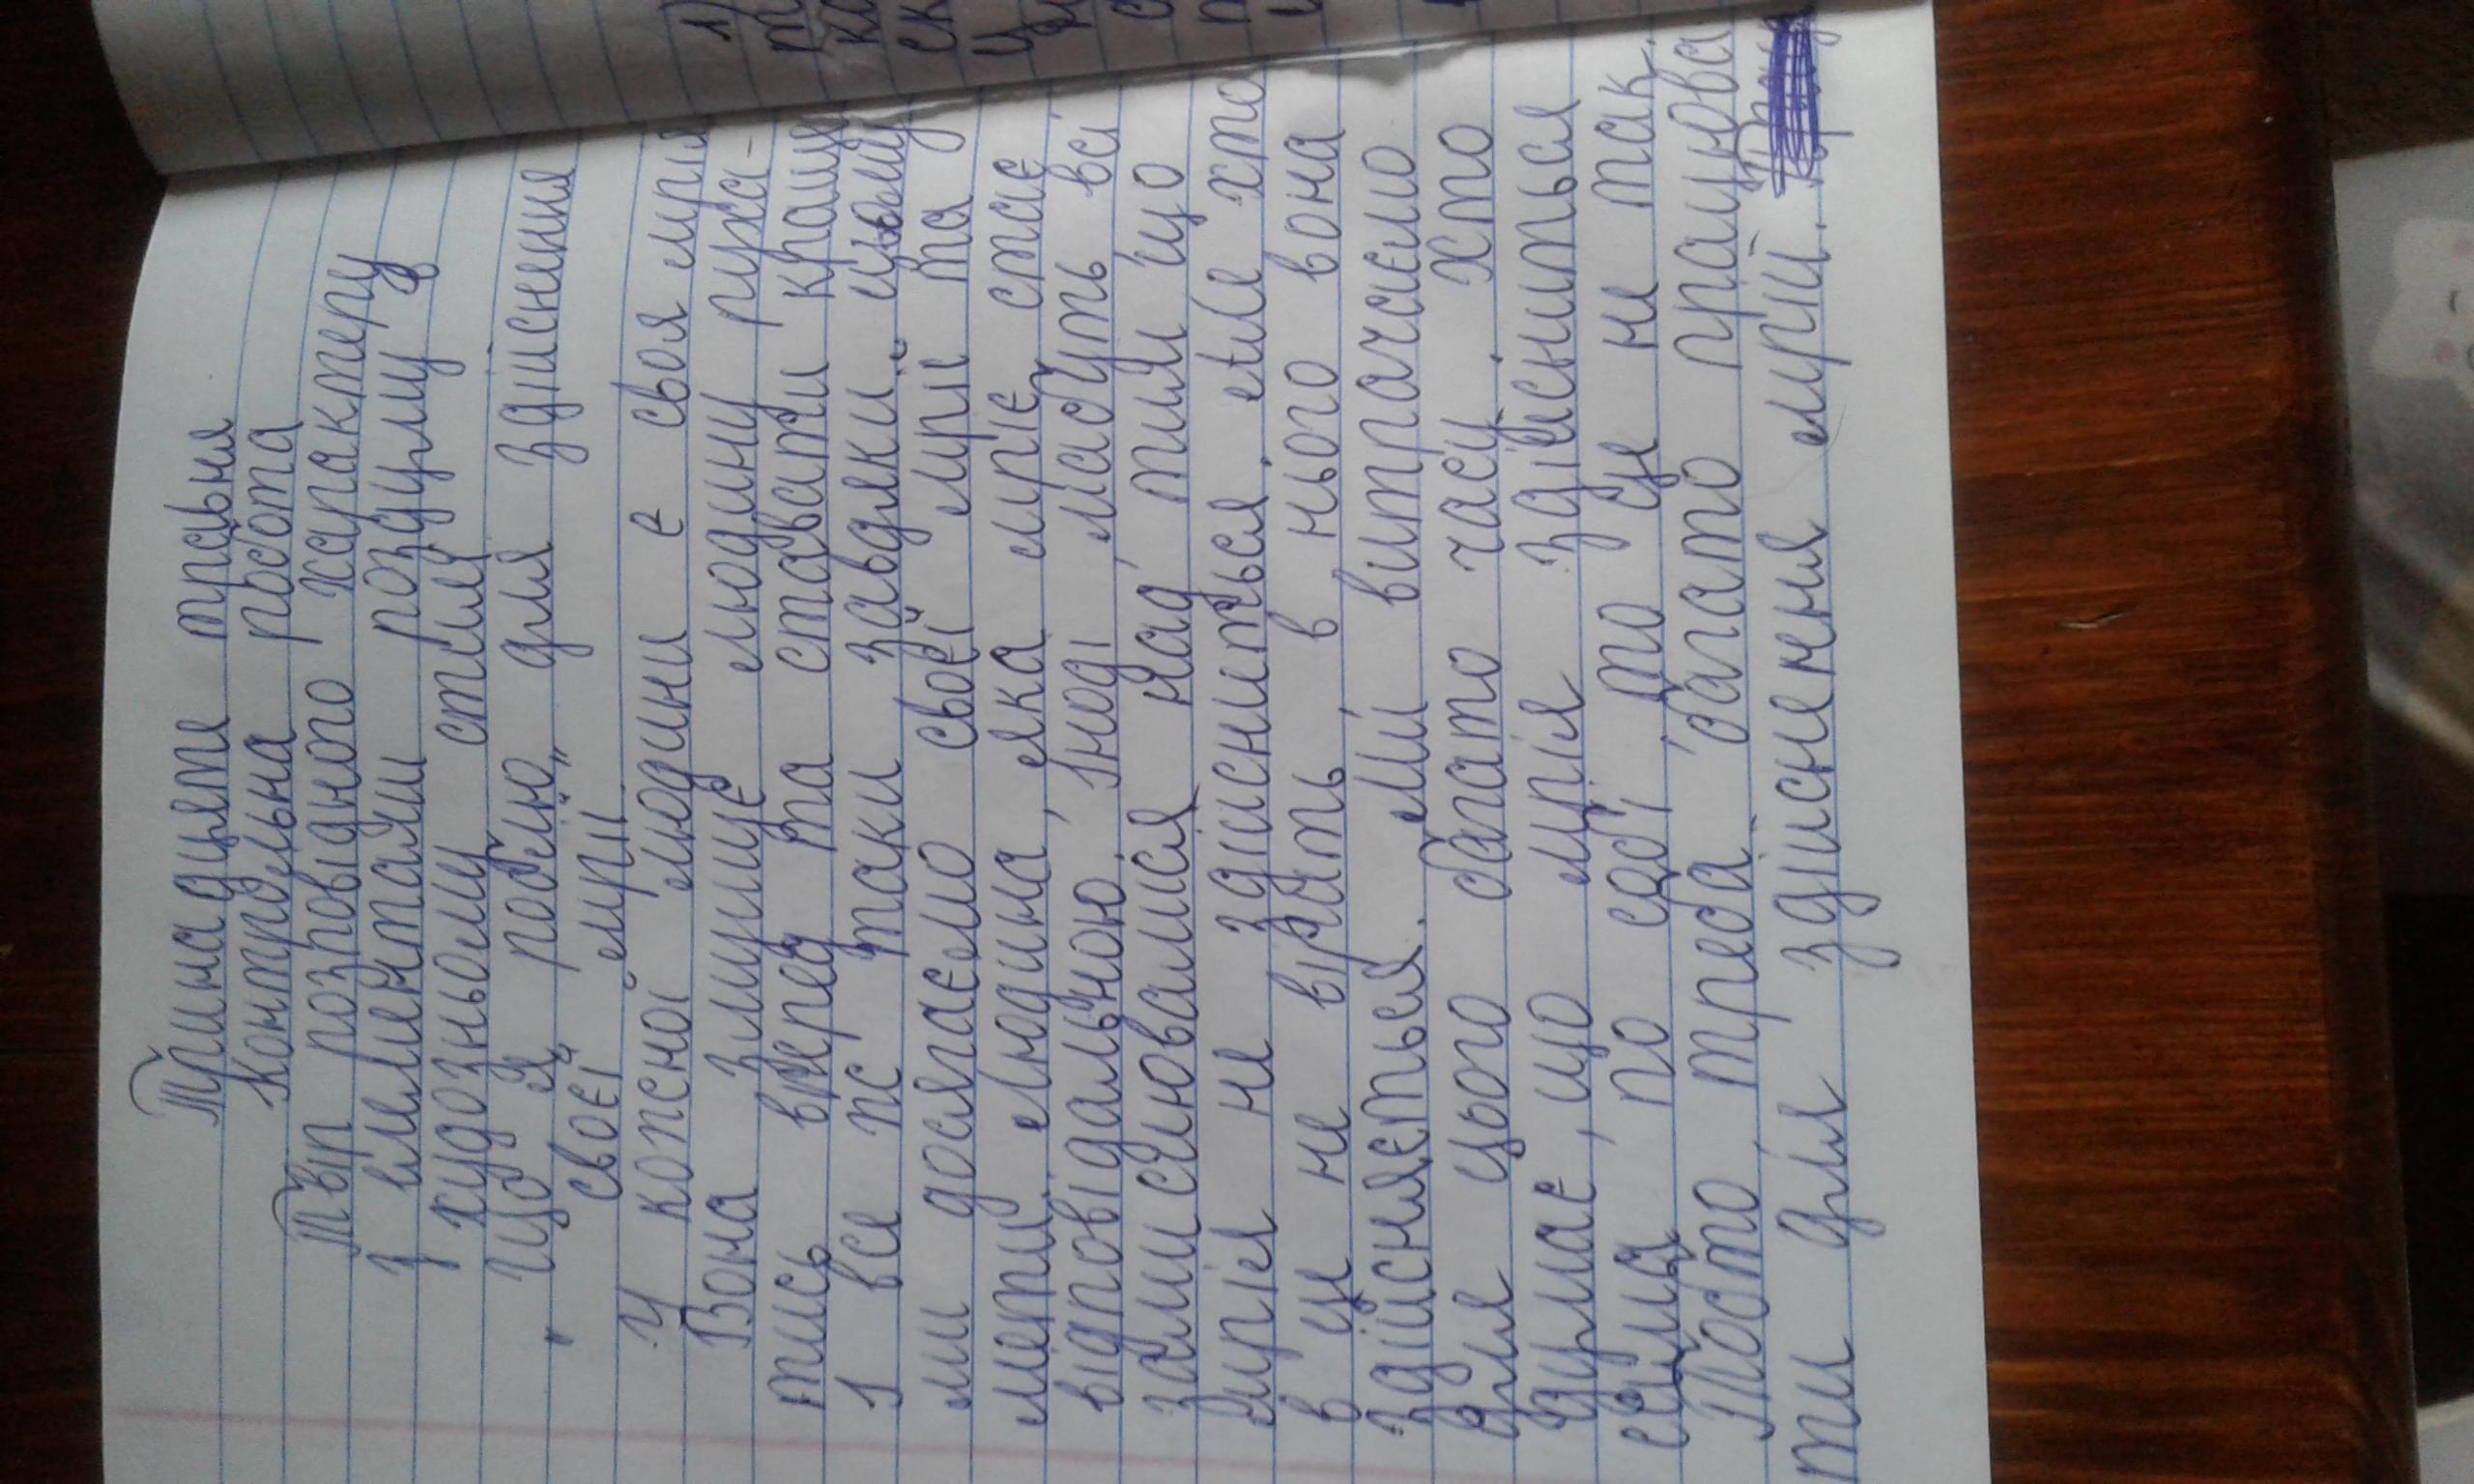 Тринадцяте травня
Контрольна робота
Твір розповідного характеру
з елементами роздуму в
художньому стилі
"Що я роблю" для здійснення
своєї мрії
У кожної людини є своя мрія
Вона змушує людину руха-
тись вперед та ставати краще
І все ж таки завдяки цьому
ми досягаємо своєї мрії та
мети. Людина, яка мріє стає
відповідальною. Іноді мабуть всі
замислювалися над тим що
мрія не здійсниться. Але хто
в це не вірить в нього вона
здійсняється. Ми витрачаємо
для цього багато часу. Хто
думає, що мрія здійсниться
сама по собі, то це не так.
Тобто треба багато працюва
ти для здійснення мрій.